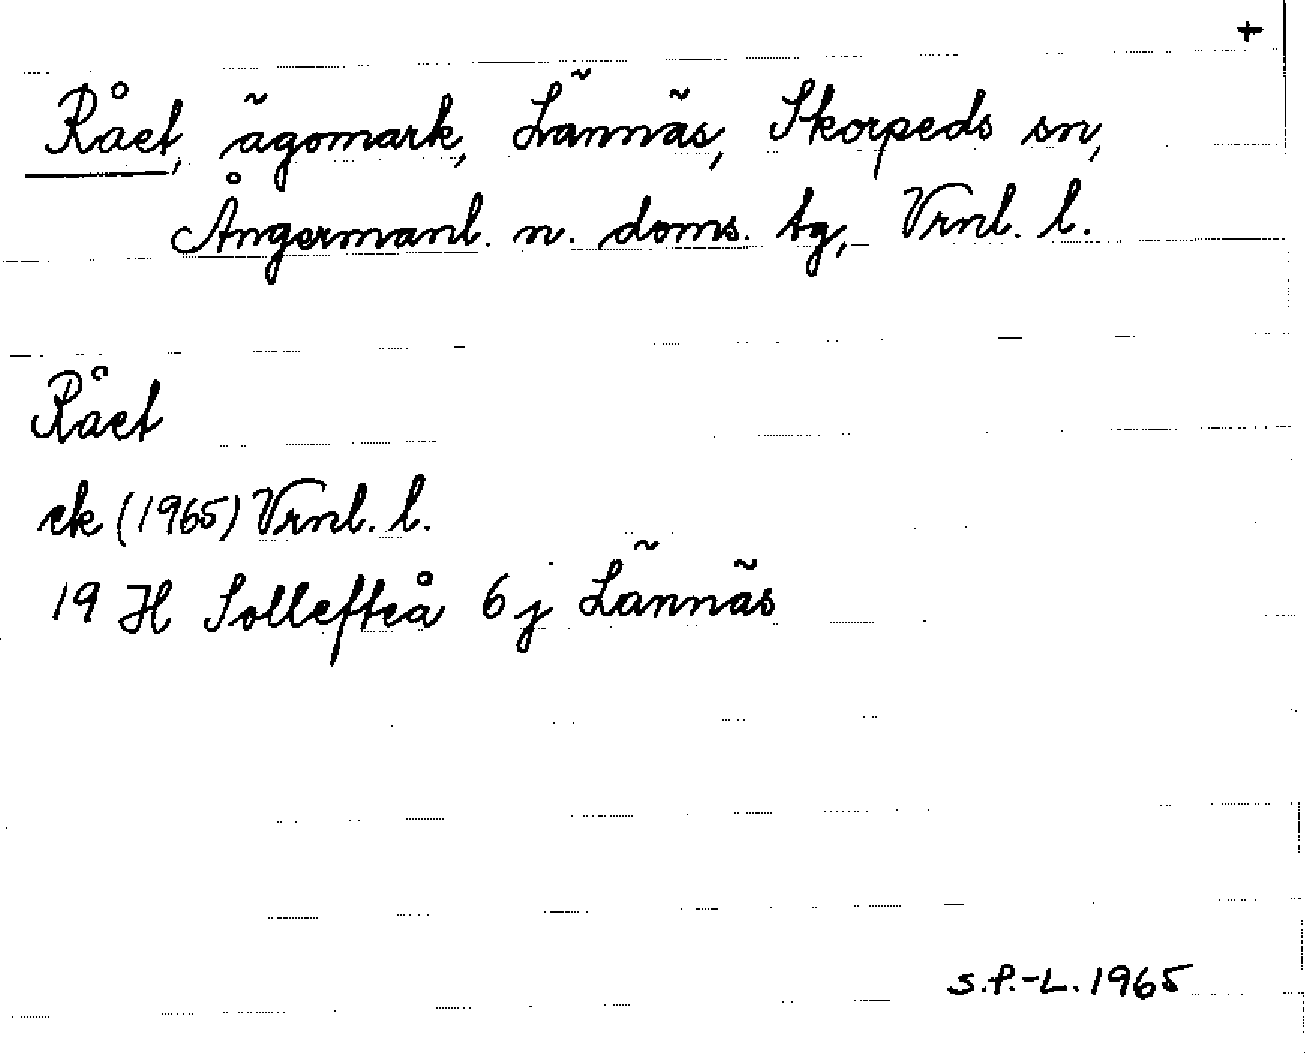 +
Rået, ägomark, Lännäs, Skorpeds sn,
Ångermanl. n. doms. tg, Vrnl. l.
Rået
ek (1965) Vrnl. l.
19 H Sollefteå 6j Lännäs
S.P.-L. 1965